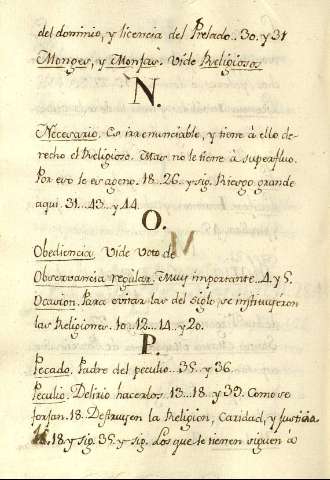 del dominio, y licencia del Prelado. 30. y 31
Monges, y Monjas. Vide Religiosos
N.
Necesario. Es irrenunciable, y tiene à ello de-
recho el Religioso. Mas no le tiene à superfluo.
Por eso le es ageno. 18..26. y sig. Riesgo grande
aqui. 31...43. y 44.
O.
Obediencia. Vide Voto de
Observancia regular. Muy importante. 4. y 5.
Ocasion. Para evitar las del siglo se instituyeron
las Religiones. 10. 12...14. y 20.
P.
Pecado. Padre del peculio...35. y 36.
Peculio. Delirio hacerlos. 13...18. y 39. Como se
forjan. 18. Destruyen la Religion, Caridad, y Justicia
18 y sig. 35. y sig. Los que le tienen siguen à